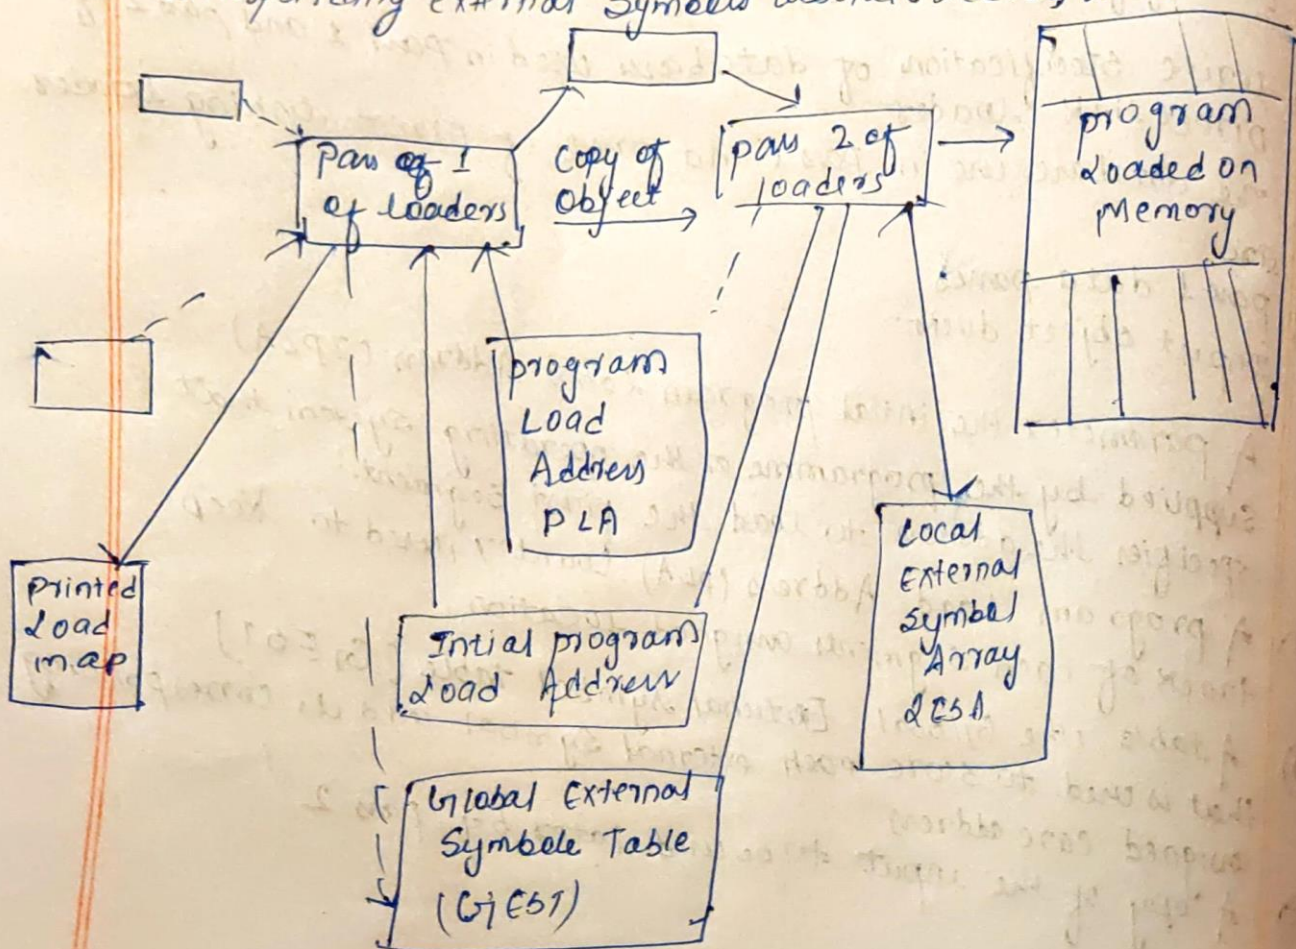 External Symbols
Pass of 1
of loaders
Copy of
Object
pass 2 of
loaders
program
Loaded on
Memory
program
Load
Address
PLA
printed
Load
map
Intial program
Load Address
Local
External
Symbol
Array
LESA
Global External
Symbole Table
(GEST)